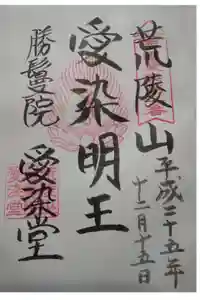 荒陵山
平成二十五年
十二月十五日
愛染明王
勝鬘院
愛染堂